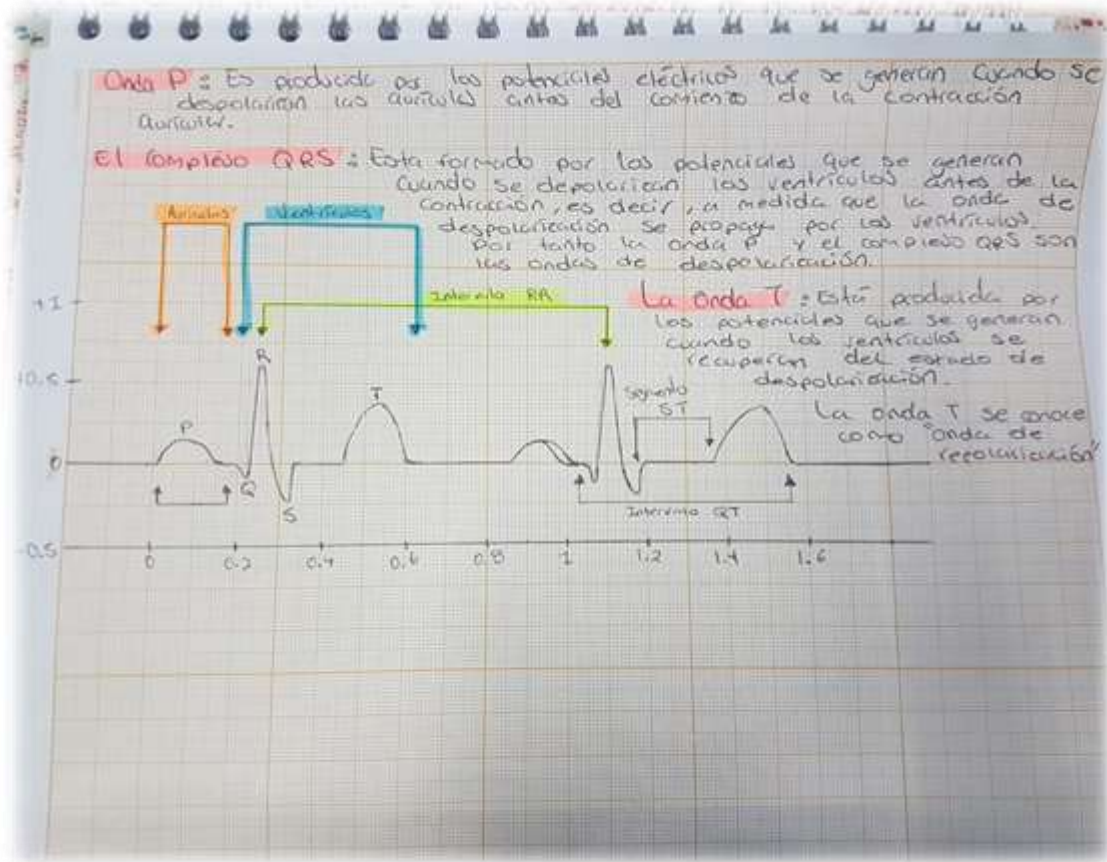 Onda P: Es producida por los potenciales eléctricos que se generan cuando se
despolarizan las aurículas antes del comienzo de la contracción
auricular.
El complejo QRS: Esta formado por los potenciales que se generan
cuando se depolarizan los ventrículos antes de la
contracción, es decir, a medida que la onda de
despolarización se propaga por los ventrículos.
Por tanto la onda P y el complejo QRS son
las ondas de despolarización.
Aurículas
Ventrículos
Intervalo RR
La onda T: Está producida por
los potenciales que se generan
cuando los ventrículos se
recuperan del estado de
despolarización.
La onda T se conoce
como "onda de
repolarización"
+1
+0.5
0
-0.5
P
Q
R
S
T
Segmento
ST
Intervalo QT
0 0.2 0.4 0.6 0.8 1 1.2 1.4 1.6